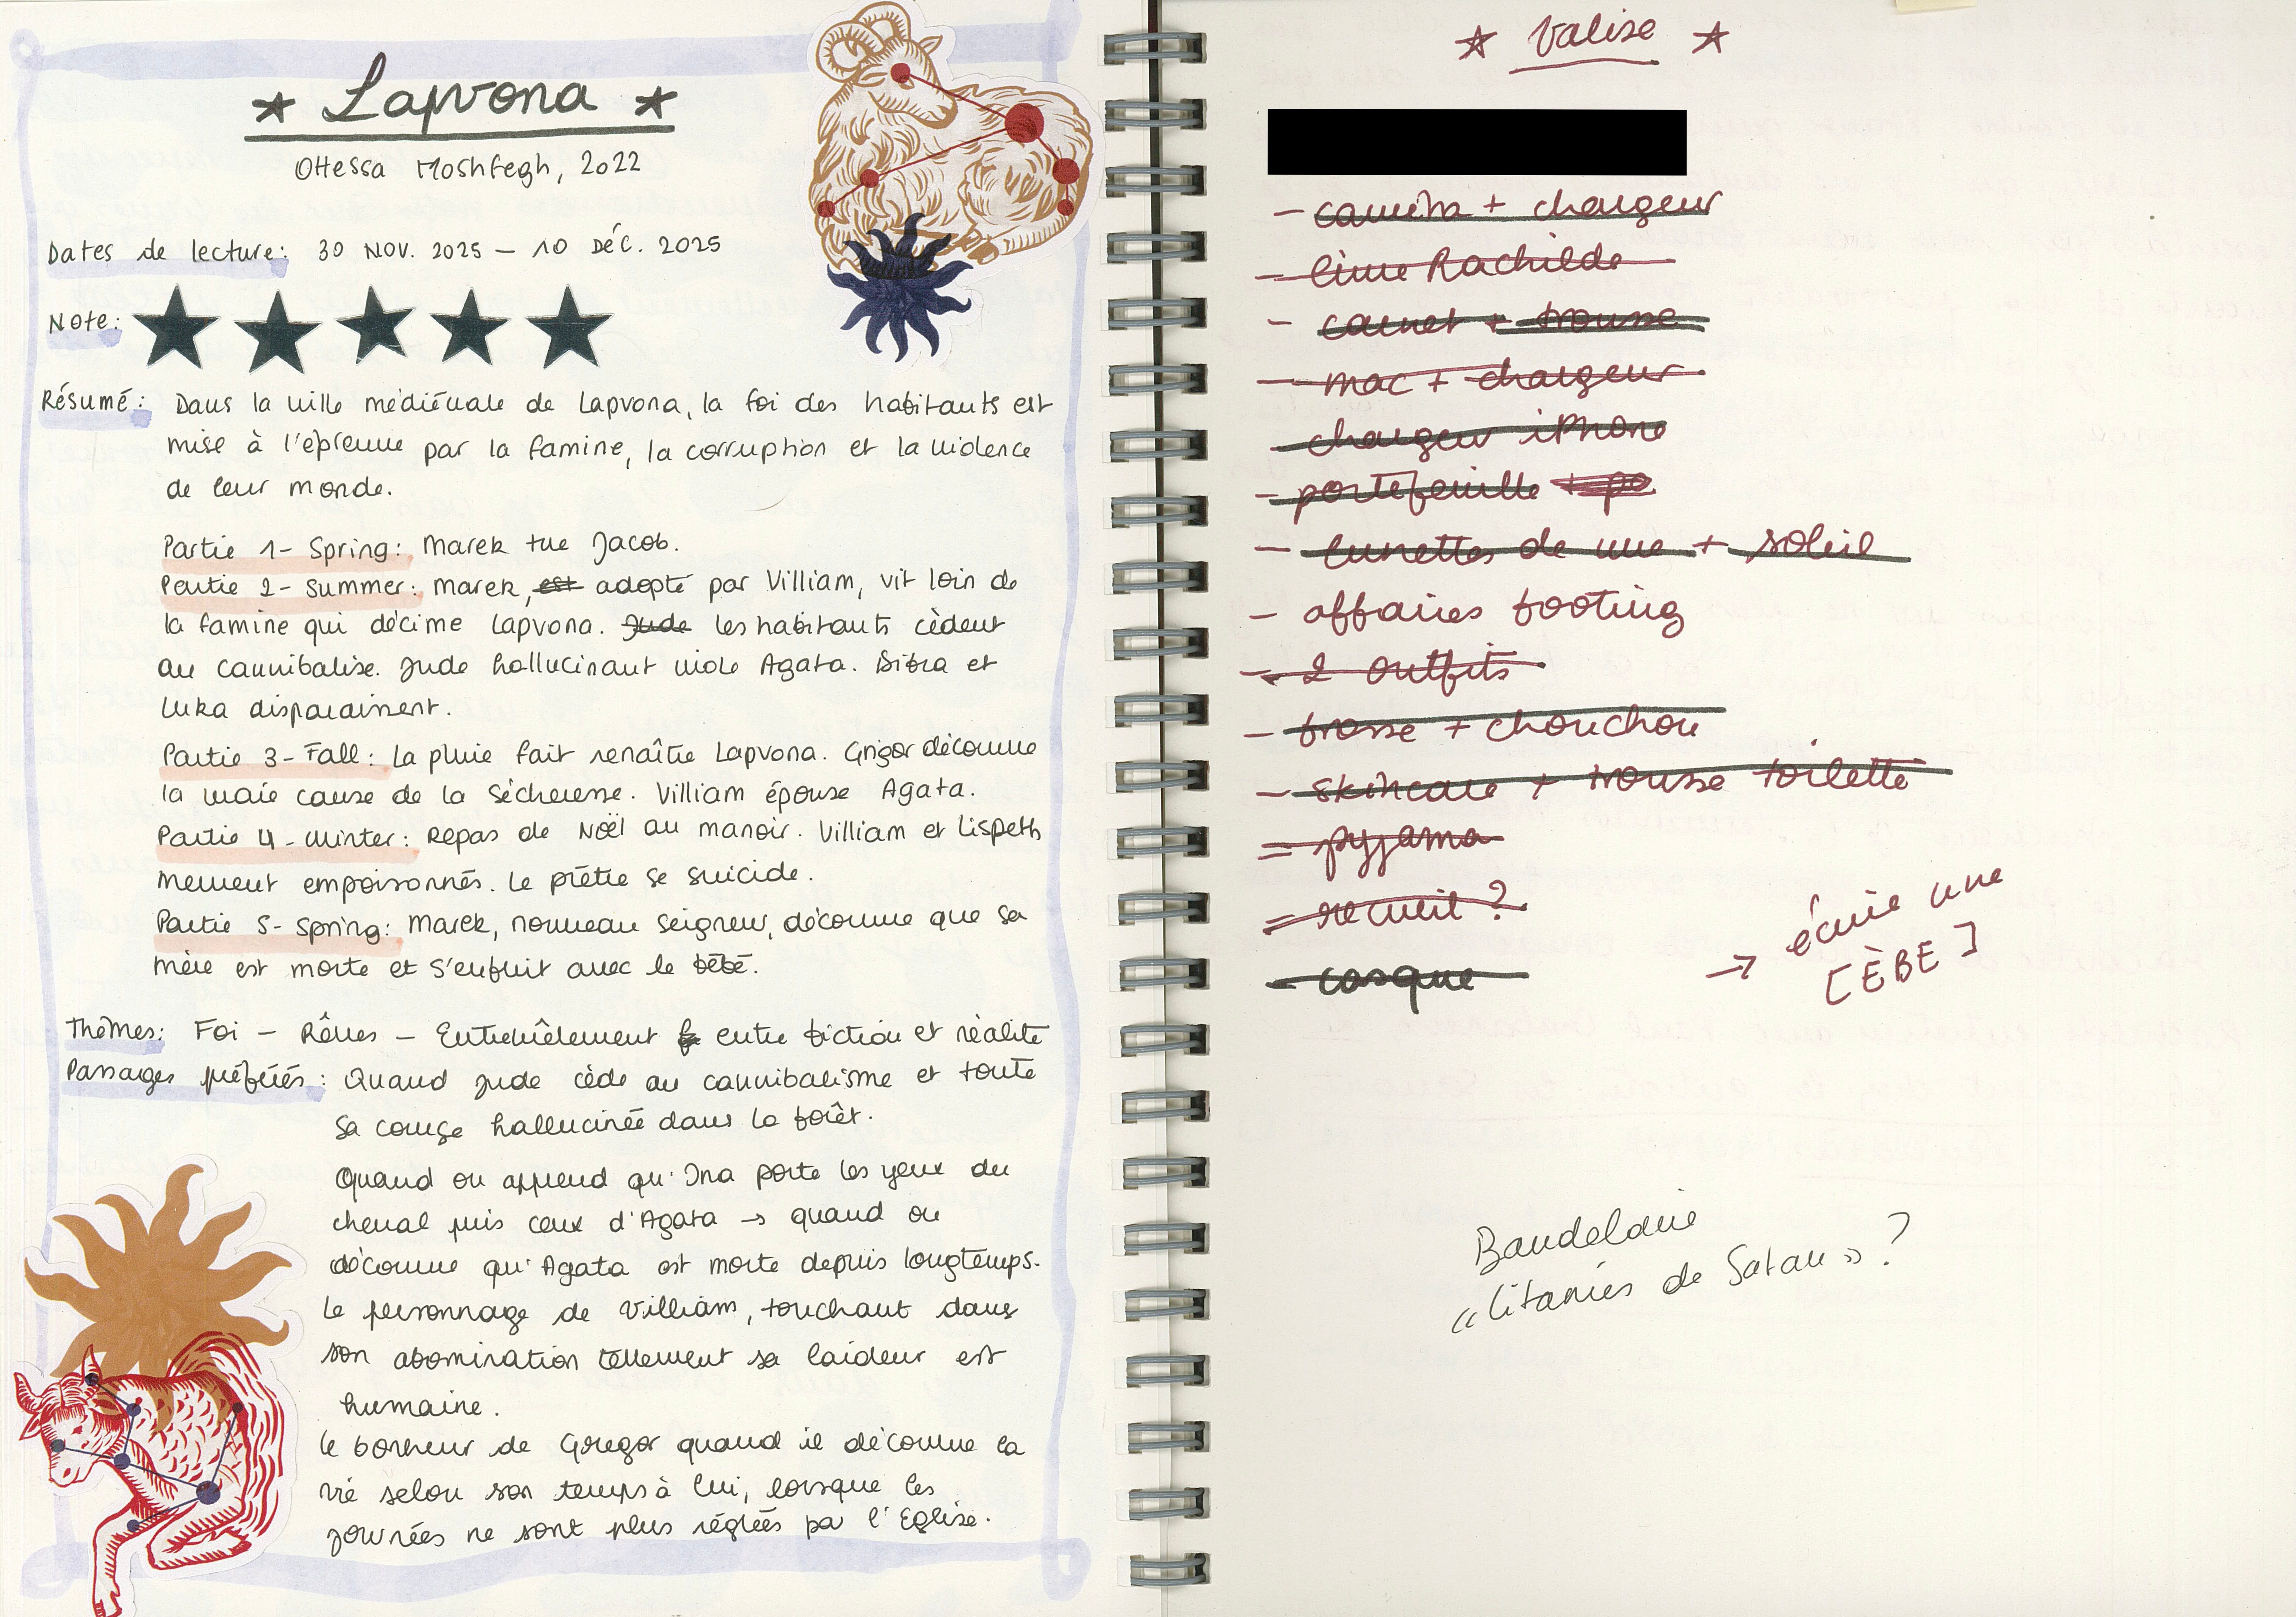 * Lapvona *
Ottessa Moshfegh, 2022
Dates de lecture: 30 NOV. 2025 – 10 DÉC. 2025
Note:
Résumé: Dans la ville médiévale de Lapvona, la foi des habitants est
mise à l'épreuve par la famine, la corruption et la violence
de leur monde.
Partie 1- Spring: Marek tue Jacob.
Partie 2- Summer: Marek, est adopté par Villiam, vit loin de
la famine qui décime Lapvona. Jude les habitants cèdent
au cannibalise. Jude hallucinant viole Agata. Dibra et
Luka disparaissent.
Partie 3- Fall: La pluie fait renaître Lapvona. Grigor découvre
la vraie cause de la sécheresse. Villiam épouse Agata.
Partie 4- Winter: Repas de Noël au manoir. Villiam et Lispeth
meurent empoisonnés. Le prêtre se suicide.
Partie 5- Spring: Marek, nouveau seigneur, découvre que sa
mère est morte et s'enfuit avec le bébé.
Thèmes: Foi – Rêves – Entremêlement entre fiction et réalité
Passages préférés: Quand Jude cède au cannibalisme et toute
sa course hallucinée dans la forêt.
Quand on apprend qu'Ina porte les yeux du
cheval puis ceux d'Agata → quand on
découvre qu'Agata est morte depuis longtemps.
Le personnage de Villiam, touchant dans
son abomination tellement sa laideur est
humaine.
Le bonheur de Gregor quand il découvre la
vie selon son temps à lui, lorsque les
journées ne sont plus réglées par l'Eglise.
* Valise *
– caméra + chargeur
– livre Rachilde
– carnet + trousse
– mac + chargeur
– chargeur iPhone
– portefeuille + po
– lunettes de vue + soleil
– affaires footing
– 2 outfits
– brosse + chouchou
– skincare + trousse toilette
– pyjama
– recueil ?
– casque
→ écrire une
[ÈBE]
Baudelaire
« Litanies de Satan » ?